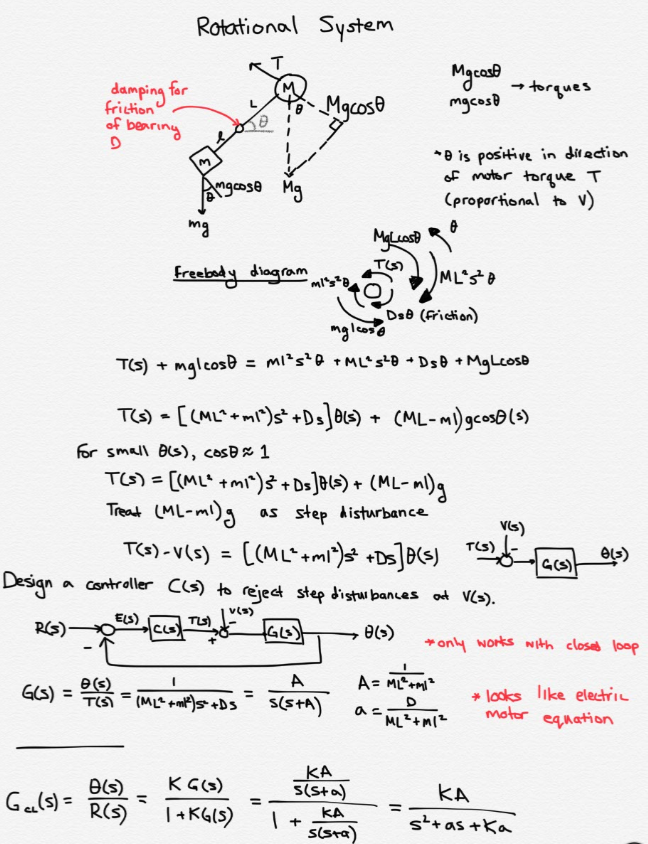 Rotational System
T
M
L
θ
θ
Mgcosθ
damping for
friction
of bearing
D
l
m
mgcosθ
θ
Mg
mg
Mgcosθ
mgcosθ → torques
*θ is positive in direction
of motor torque T
(proportional to V)
freebody diagram
MgLcosθ
θ
T(s)
ml²s²θ
ML²s²θ
Dsθ (friction)
mglcosθ
T(s) + mglcosθ = ml²s²θ + ML²s²θ + Dsθ + MgLcosθ
T(s) = [(ML²+ml²)s² + Ds]θ(s) + (ML-ml)gcosθ(s)
For small θ(s), cosθ ≈ 1
T(s) = [(ML² + ml²)s² + Ds]θ(s) + (ML-ml)g
Treat (ML-ml)g as step disturbance
T(s) - V(s) = [(ML²+ml²)s² + Ds]θ(s)
V(s)
T(s) - G(s) θ(s)
Design a controller C(s) to reject step disturbances at V(s).
R(s) E(s) C(s) T(s) V(s) G(s) θ(s)
- + -
*only works with closed loop
G(s) = θ(s)/T(s) = 1/((ML²+ml²)s²+Ds) = A/(s(s+A))
A = 1/(ML²+ml²)
a = D/(ML²+ml²)
* looks like electric
motor equation
G_CL(s) = θ(s)/R(s) = K G(s)/(1+KG(s)) = (KA/(s(s+a)))/(1 + KA/(s(s+a))) = KA/(s²+as+Ka)